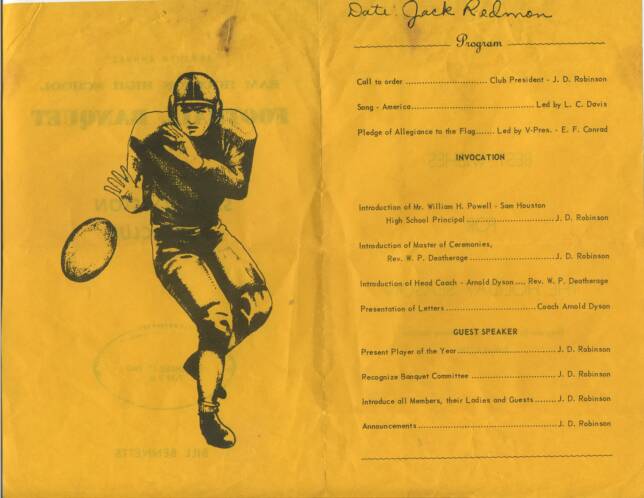 Date: Jack Redmon
Program
Call to order ........................ Club President - J. D. Robinson
Song - America................................... Led by L. C. Davis
Pledge of Allegiance to the Flag...... Led by V-Pres. - E. F. Conrad
INVOCATION
Introduction of Mr. William H. Powell - Sam Houston
High School Principal ......................... J. D. Robinson
Introduction of Master of Ceremonies,
Rev. W. P. Deatherage ......................... J. D. Robinson
Introduction of Head Coach - Arnold Dyson .... Rev. W. P. Deatherage
Presentation of Letters ......................... Coach Arnold Dyson
GUEST SPEAKER
Present Player of the Year ............................ J. D. Robinson
Recognize Banquet Committee ........................ J. D. Robinson
Introduce all Members, their Ladies and Guests ....... J. D. Robinson
Announcements ....................................... J. D. Robinson